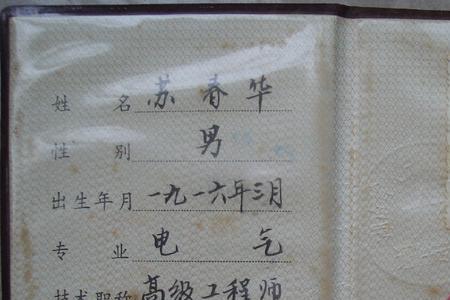 姓名 苏春华
性别 男
出生年月 一九一六年三月
专业 电气
技术职称 高级工程师